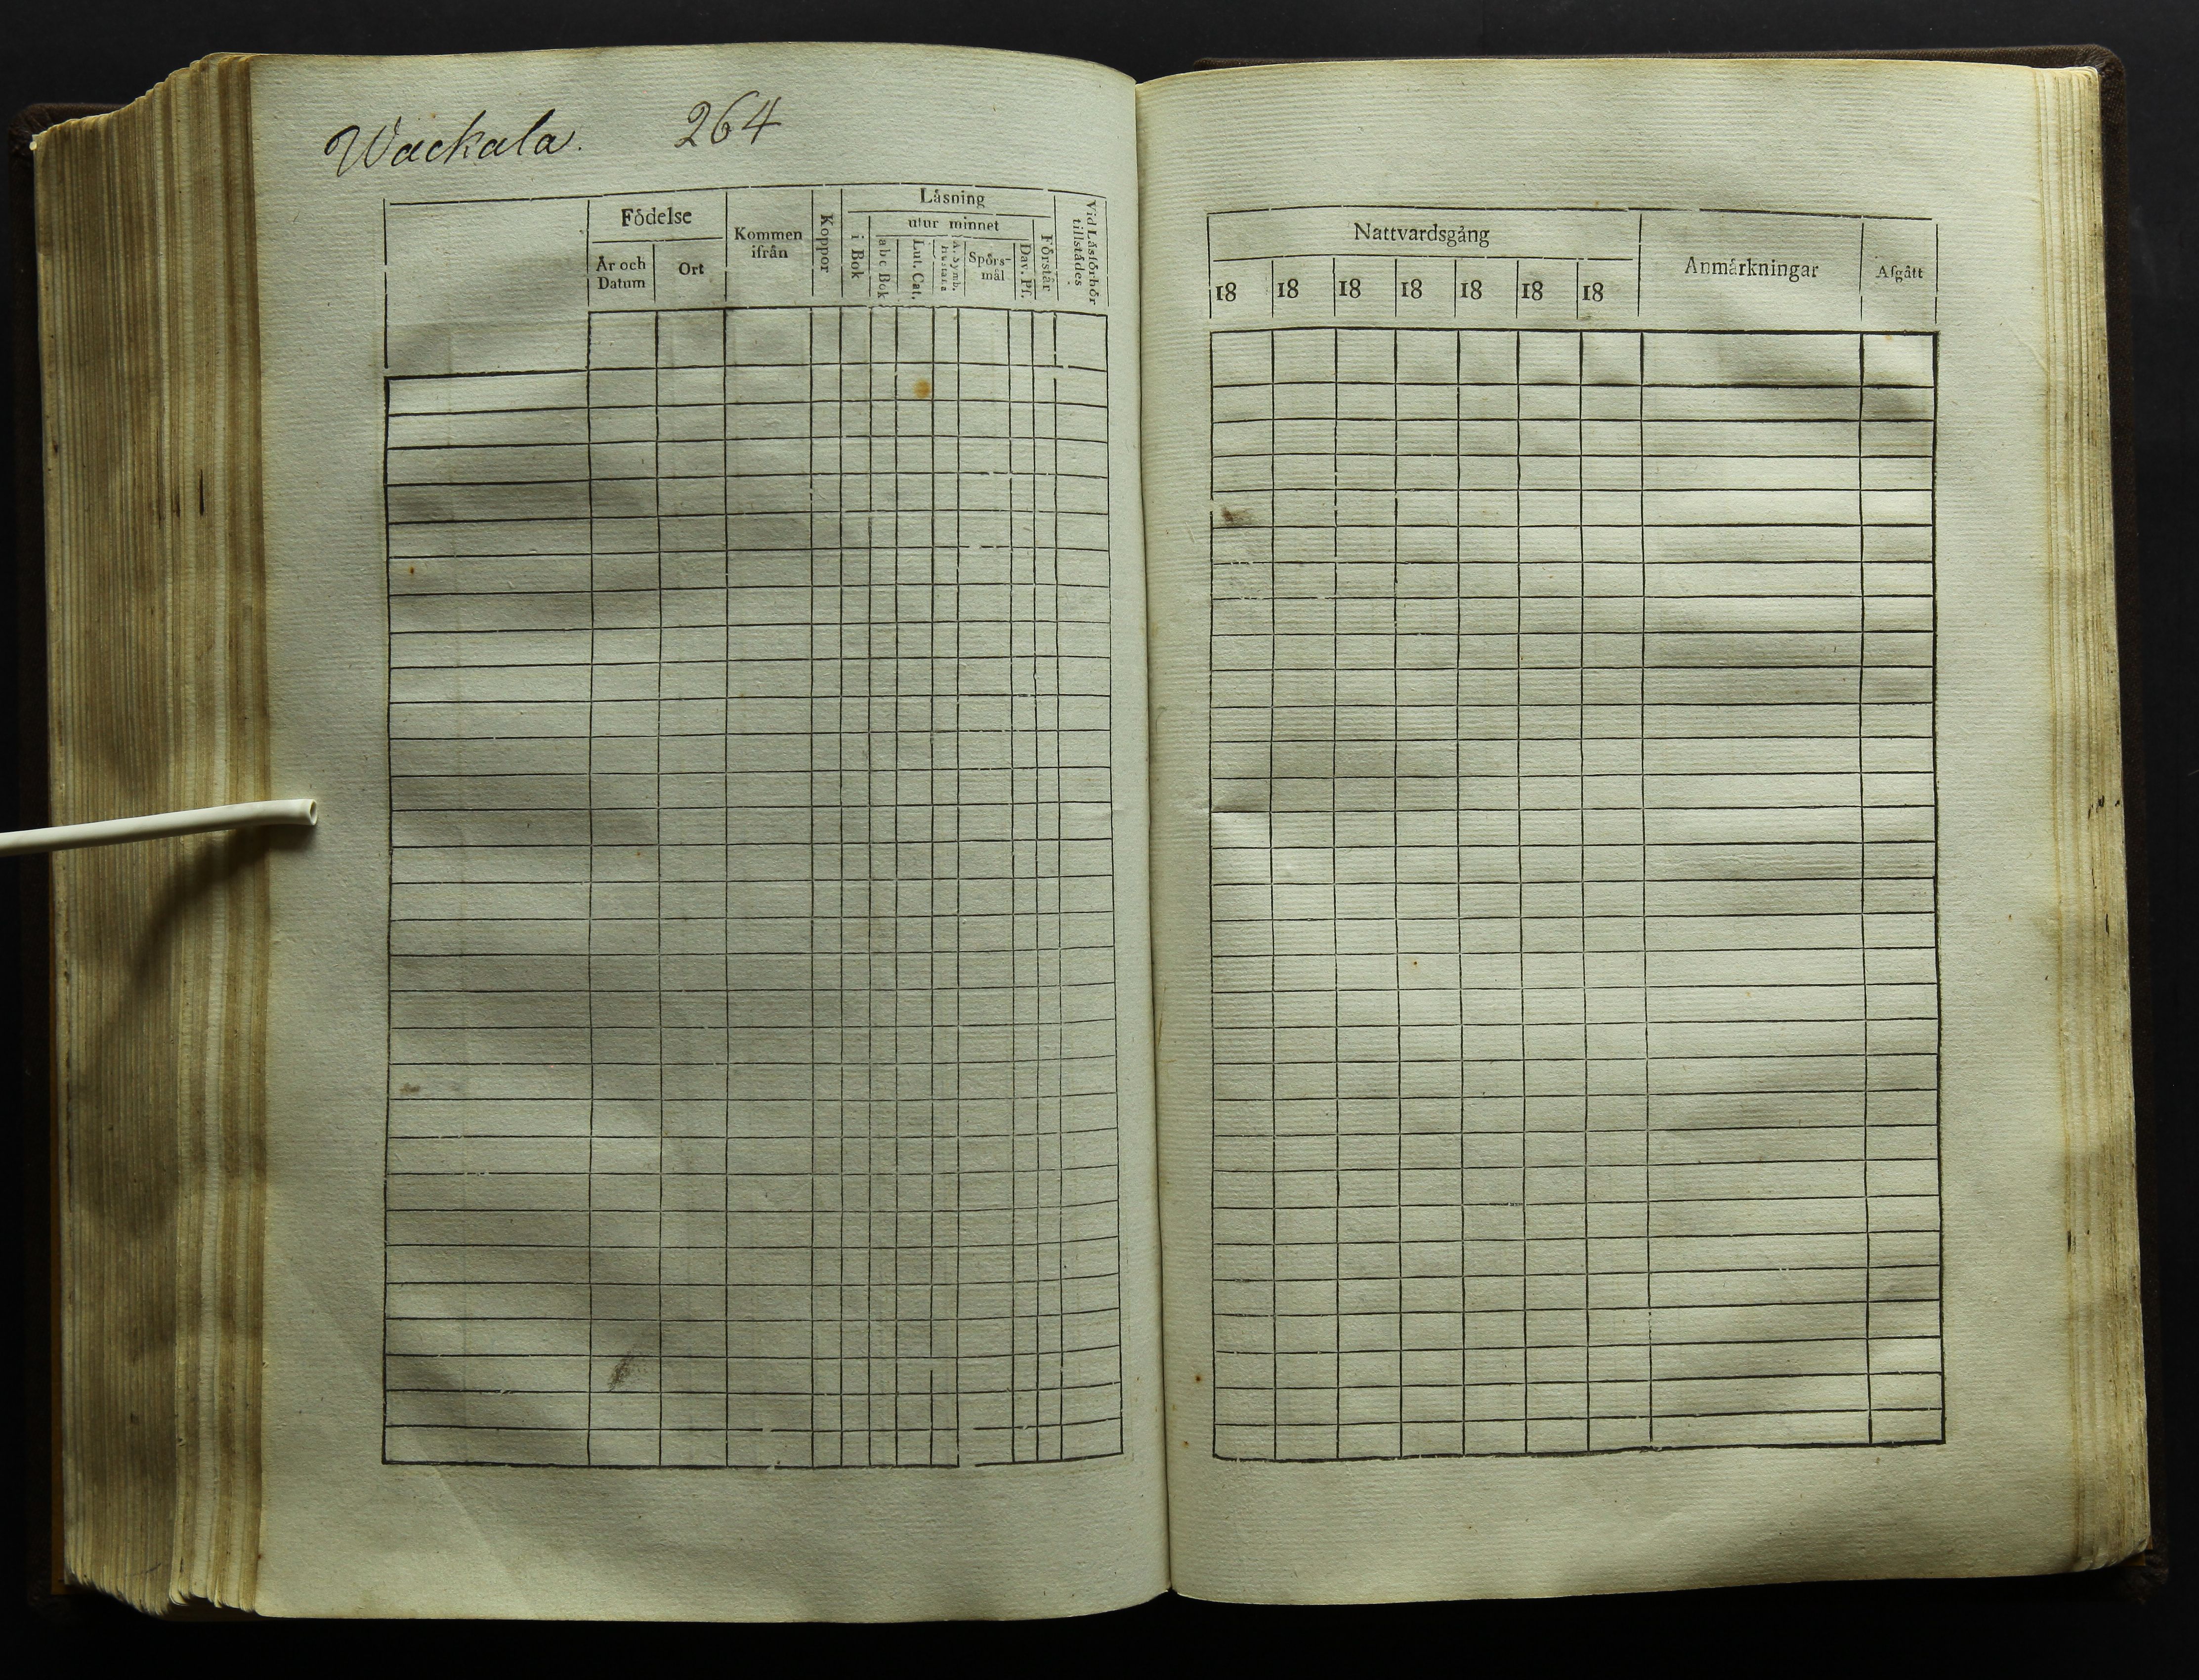 Wackala. 264
Födelse
År och Datum
Ort
Kommen ifrån
Koppor
Läsning
i Bok
utur minnet
abc Bok
Lut. Cat.
A. Symb.
Spörs-mål
Dav. Ps.
Förstår
Vid Läsförhör tillstädes
Nattvardsgång
18 18 18 18 18 18 18
Anmärkningar
Afgått